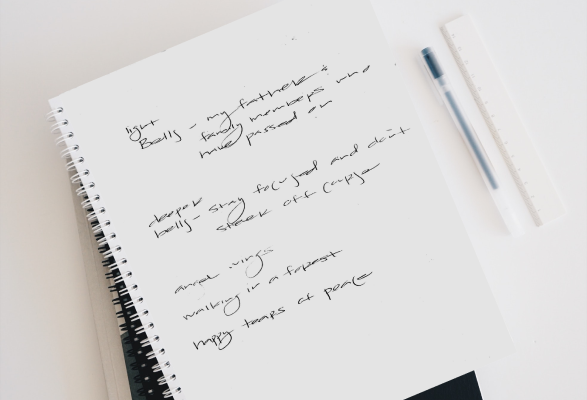 light
Bells - my father &
family members who
have passed on
deeper
bells - stay focused and don't
steer off course
angel wings
walking in a forest
happy tears of peace